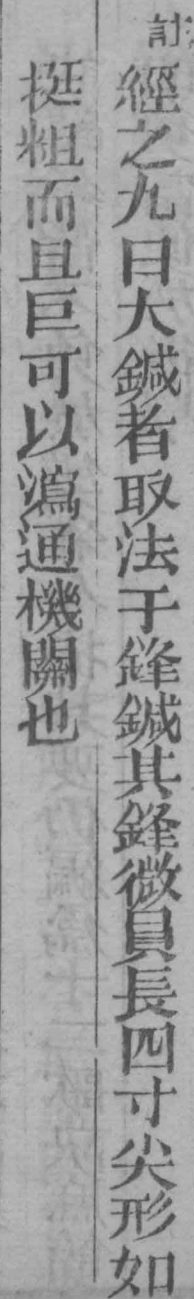 註
經之九曰大鍼者取法于鋒鍼其鋒微員長四寸尖形如
挺粗而且巨可以瀉通機關也